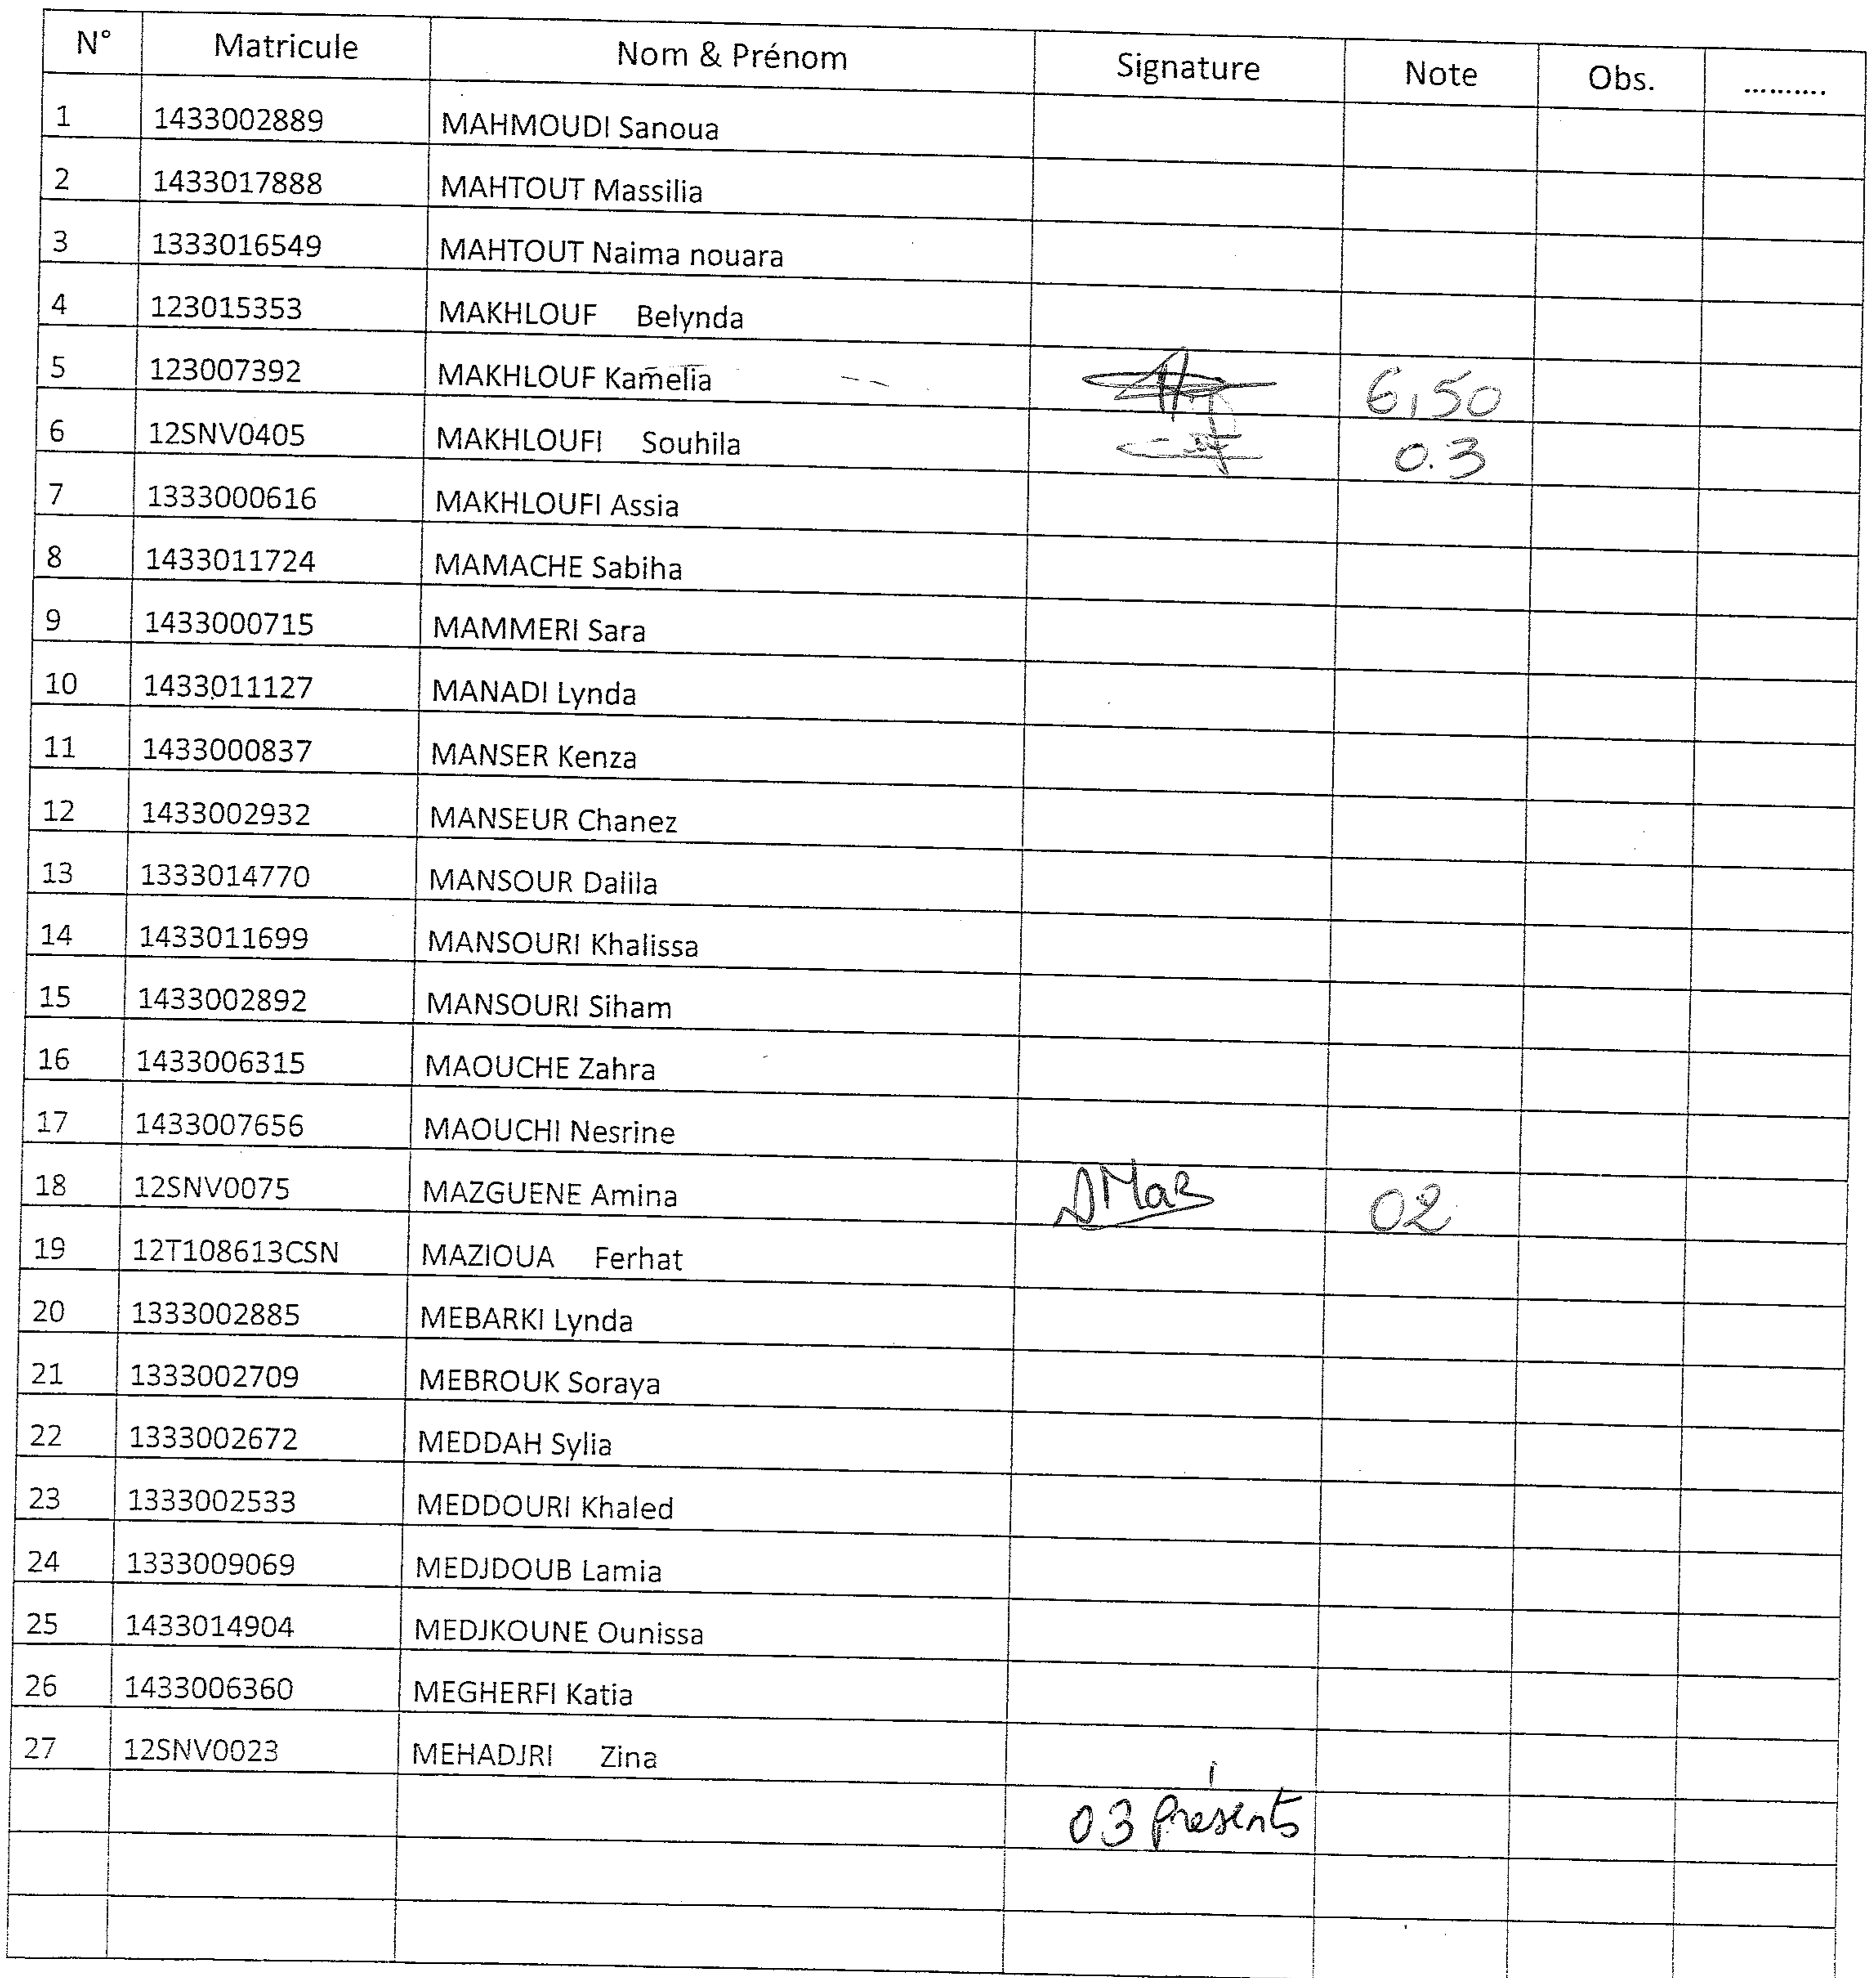 N° Matricule Nom & Prénom Signature Note Obs. ..........
1 1433002889 MAHMOUDI Sanoua
2 1433017888 MAHTOUT Massilia
3 1333016549 MAHTOUT Naima nouara
4 123015353 MAKHLOUF Belynda
5 123007392 MAKHLOUF Kamelia 6,50
6 12SNV0405 MAKHLOUFI Souhila 0.3
7 1333000616 MAKHLOUFI Assia
8 1433011724 MAMACHE Sabiha
9 1433000715 MAMMERI Sara
10 1433011127 MANADI Lynda
11 1433000837 MANSER Kenza
12 1433002932 MANSEUR Chanez
13 1333014770 MANSOUR Dalila
14 1433011699 MANSOURI Khalissa
15 1433002892 MANSOURI Siham
16 1433006315 MAOUCHE Zahra
17 1433007656 MAOUCHI Nesrine
18 12SNV0075 MAZGUENE Amina 02
19 12T108613CSN MAZIOUA Ferhat
20 1333002885 MEBARKI Lynda
21 1333002709 MEBROUK Soraya
22 1333002672 MEDDAH Sylia
23 1333002533 MEDDOURI Khaled
24 1333009069 MEDJDOUB Lamia
25 1433014904 MEDJKOUNE Ounissa
26 1433006360 MEGHERFI Katia
27 12SNV0023 MEHADJRI Zina
03 présents